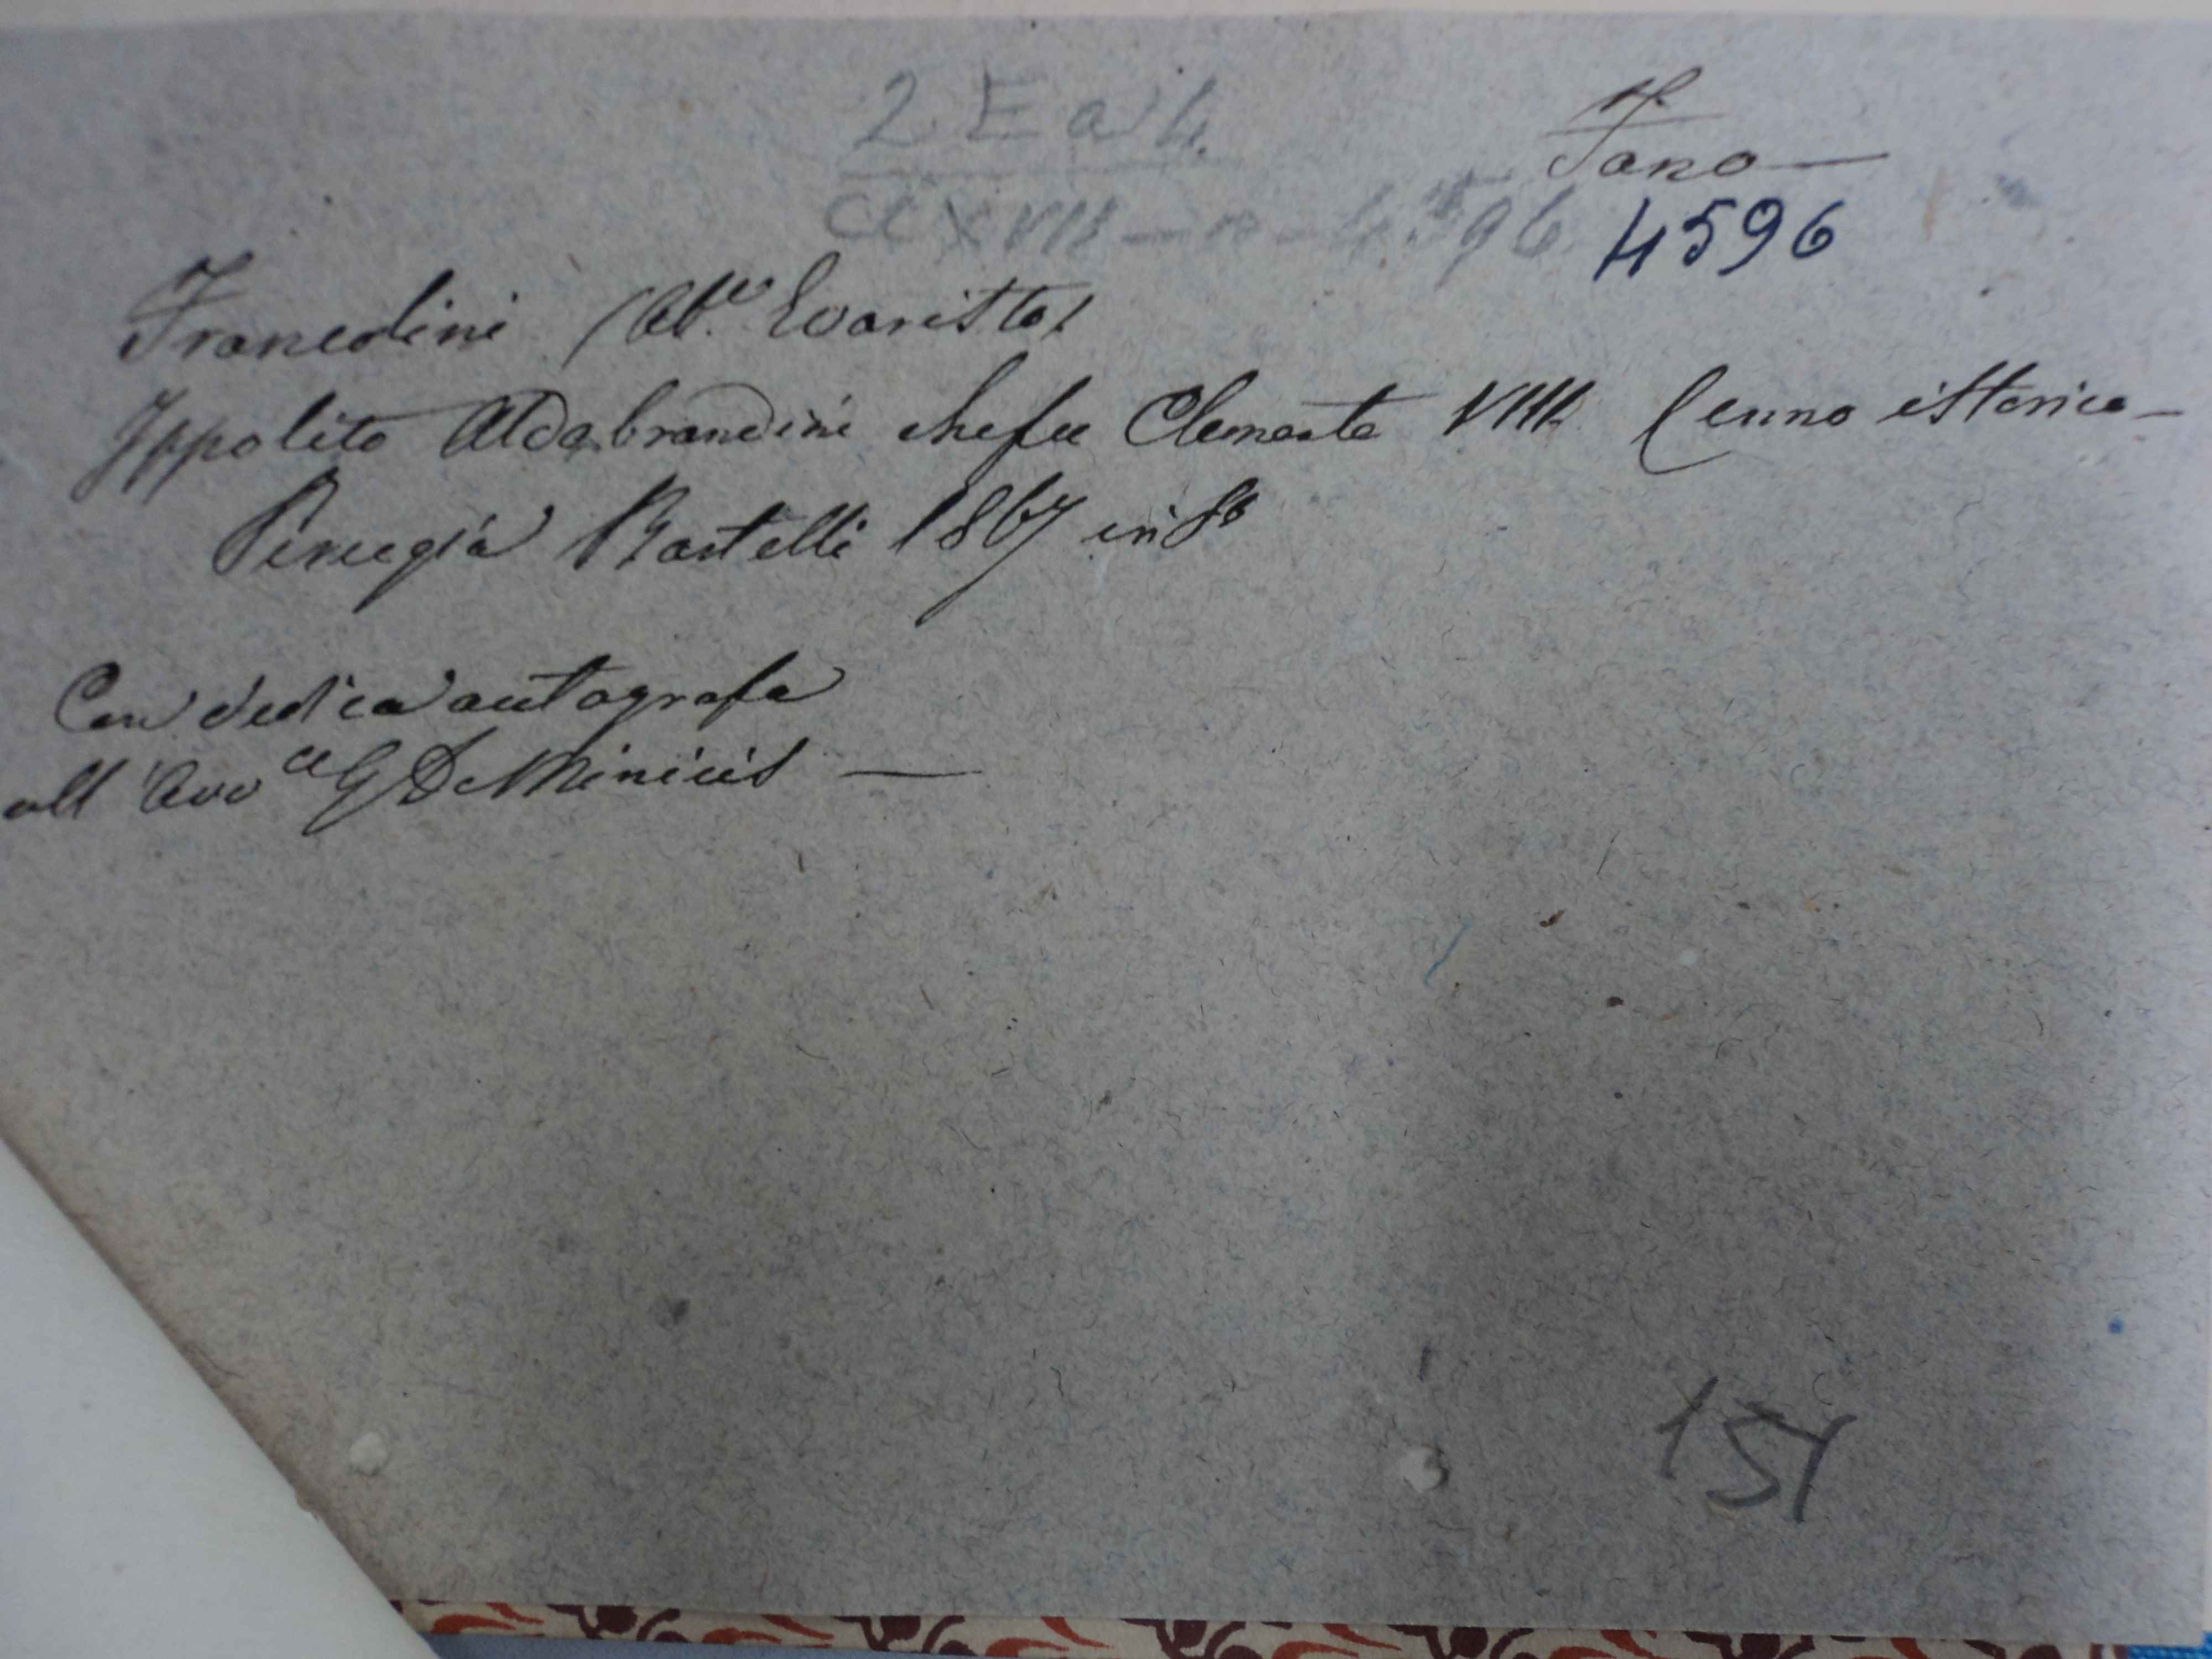 2 E a 4.
Fano —
a XVIII – n – 4596 4596
Francolini (Ab.e Evaristo)
Ippolito Aldobrandini che fu Clemente VIII. Cenno istorico —
Perugia Bartelli 1867 in 8o
Con dedica autografa
all'Avv ce G De Minicis —
151